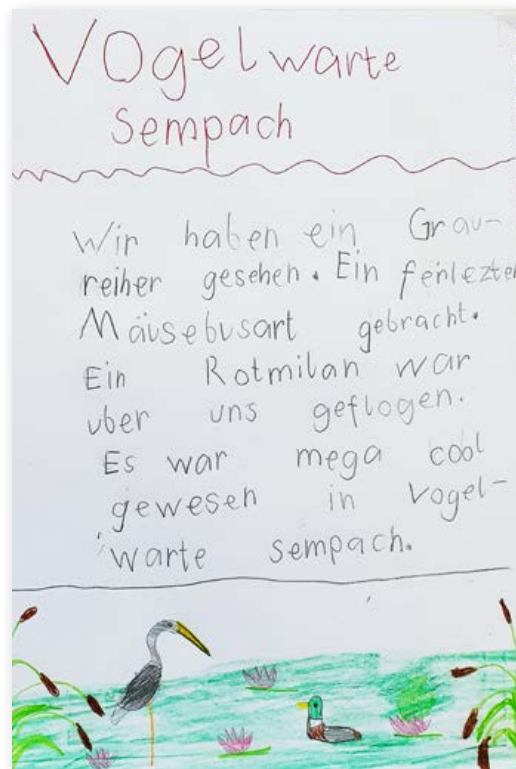 Vogelwarte
Sempach
Wir haben ein Grau-
reiher gesehen. Ein ferlezter
Mäusebusart gebracht.
Ein Rotmilan war
uber uns geflogen.
Es war mega cool
gewesen in Vogel-
warte sempach.